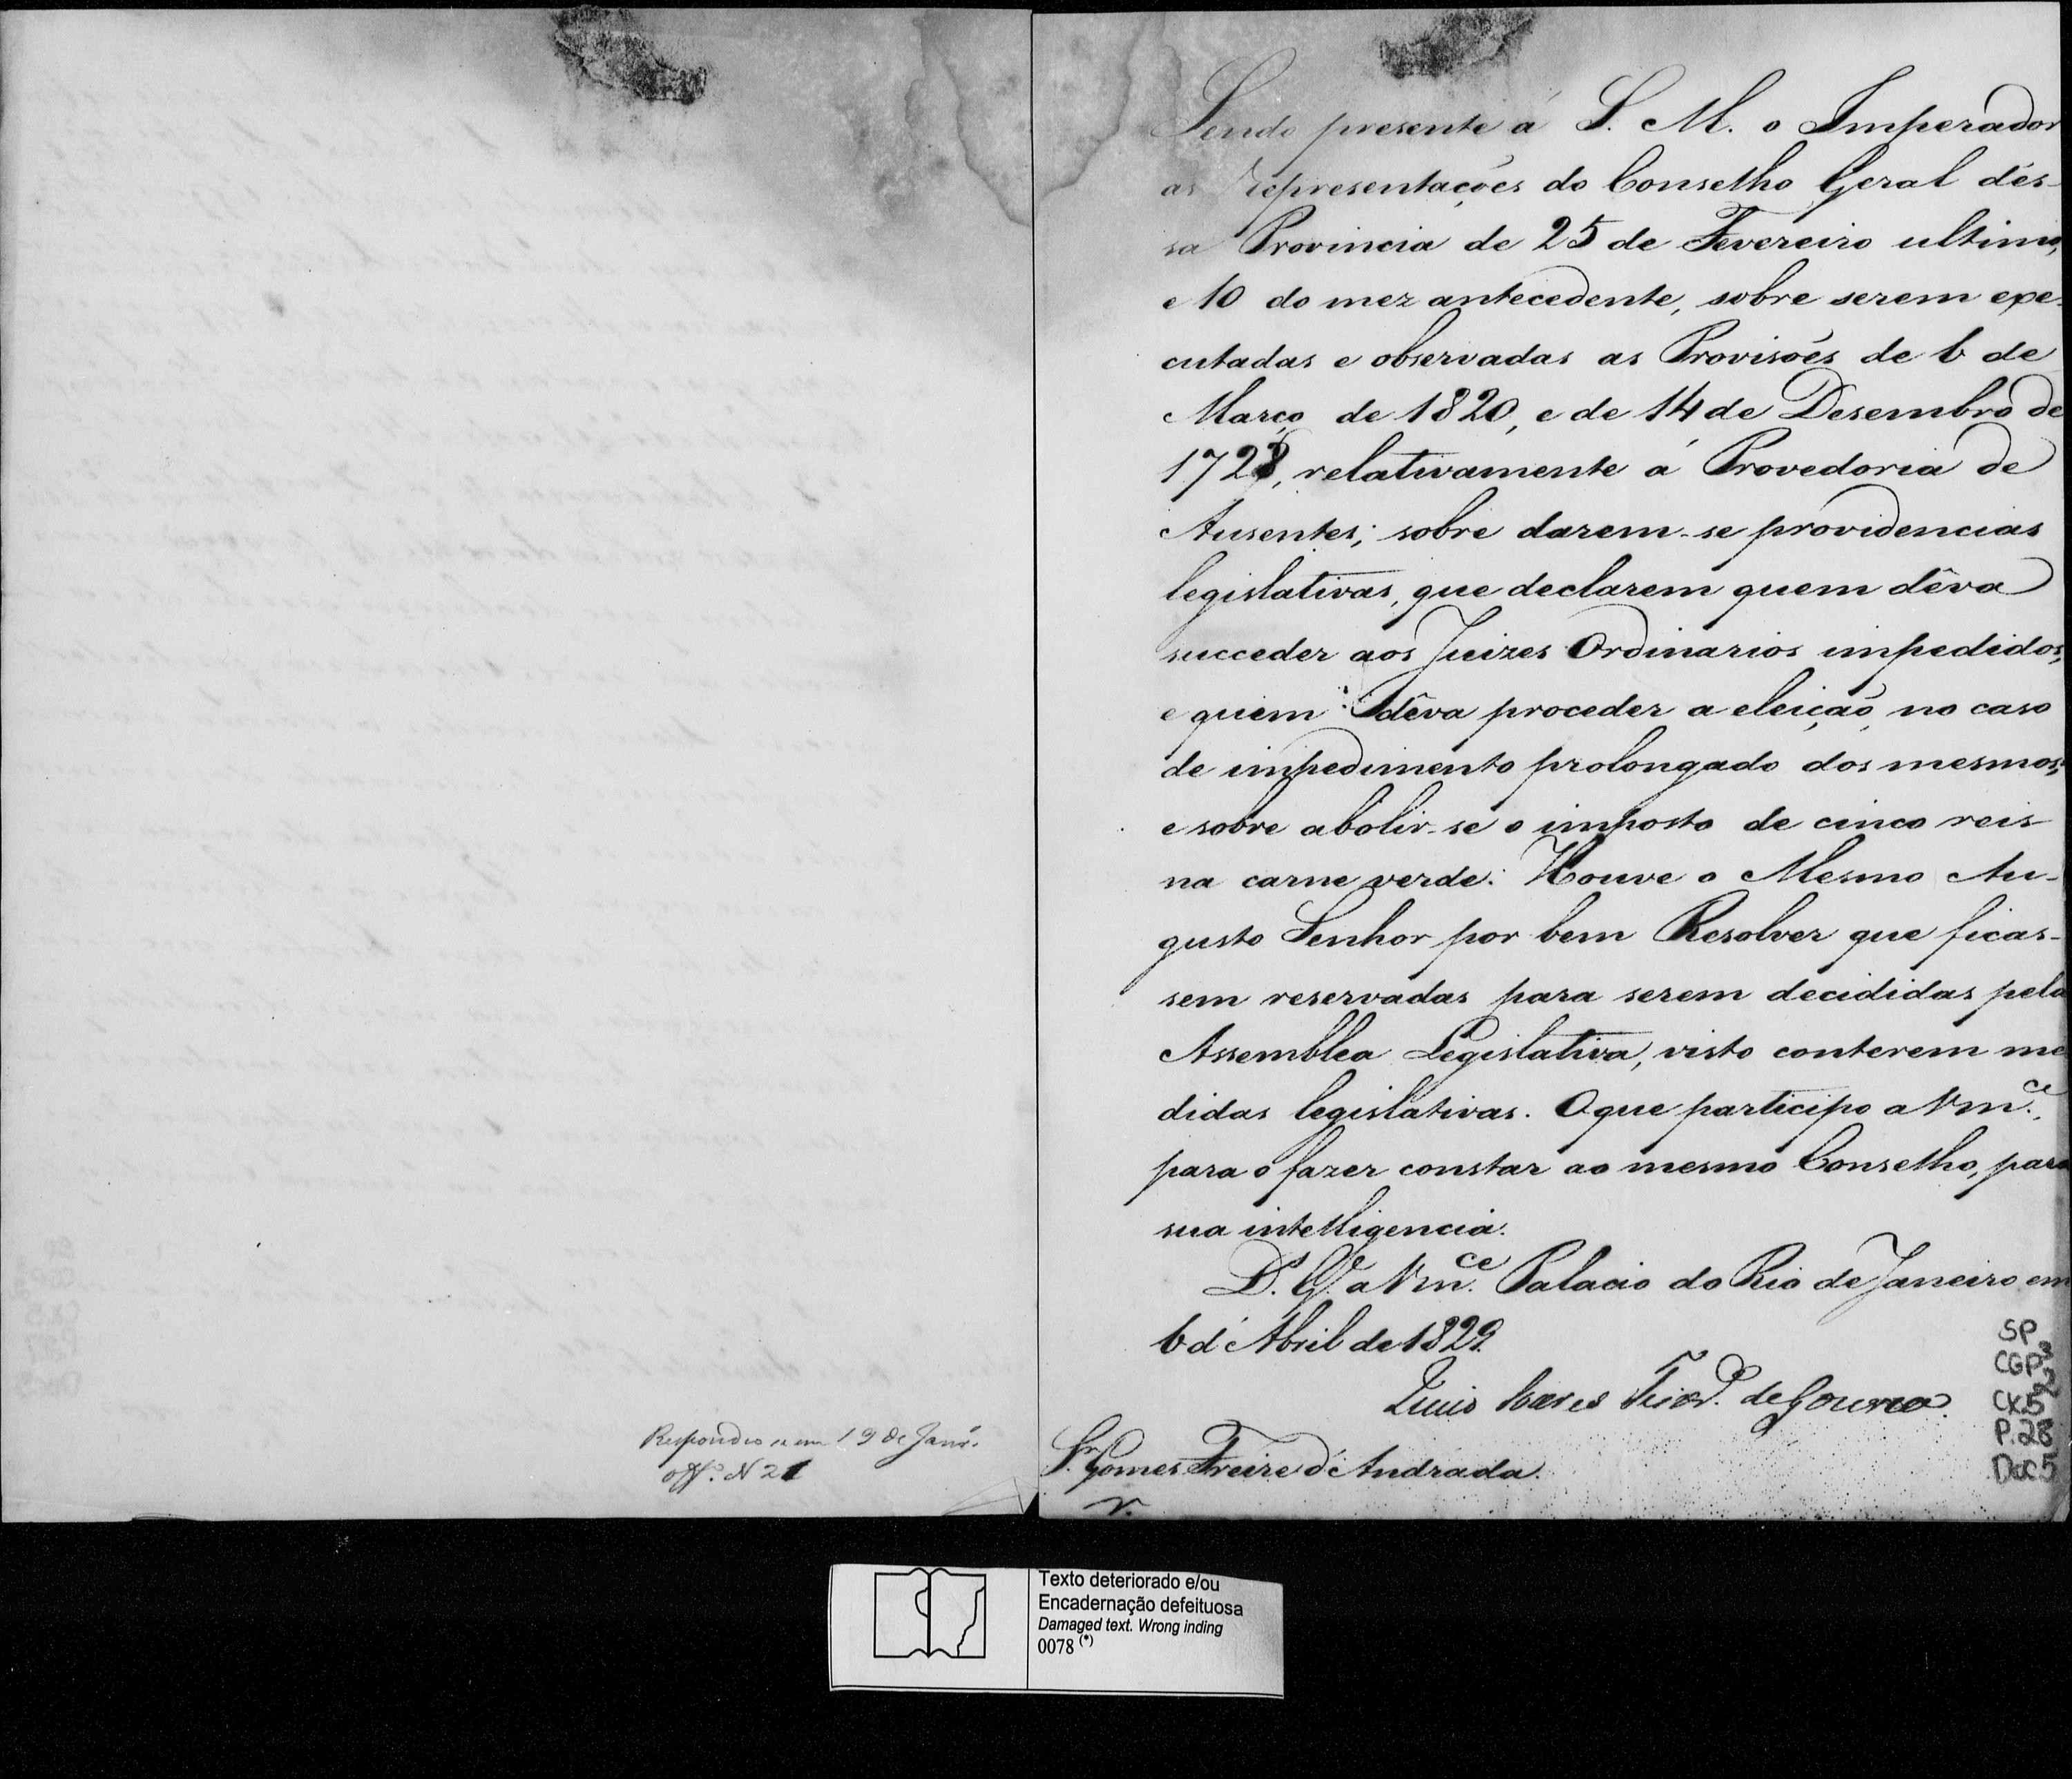 Respondeo se em 19 de Janr.º
off.º N 21
Sendo presente á S. M. o Imperador
as Representações do Conselho Geral dés-
sa Provincia de 25 de Fevereiro ultimo,
e 10 do mez antecedente, sobre serem exe-
cutadas e observadas as Provisões de 6 de
Março de 1820, e de 14 de Desembro de
1728, relativamente á Provedoria de
Ausentes; sobre darem-se providencias
legislativas, que declarem quem dêva
succeder aos Juizes Ordinarios impedidos,
e quem dêva proceder a eleição no caso
de impedimento prolongado dos mesmos;
e sobre abolir-se o imposto de cinco reis
na carne verde: Houve o Mesmo Au-
gusto Senhor por bem Resolver que ficas-
sem reservadas para serem decididas pela
Assemblea Legislativa, visto conterem me
didas legislativas. O que participo a Vm.ce,
para o fazer constar ao mesmo Conselho, para
sua intelligencia.
D.s G.e a Vm.ce Palacio do Rio de Janeiro em
6 d'Abril de 1829.
Lucio Soares Teix.ra de Gouvea.
Sr. Gomes Freire d'Andrada.
SP
CGP3
CX.52
P.28
Doc5
Texto deteriorado e/ou
Encadernação defeituosa
Damaged text. Wrong inding
0078 (*)